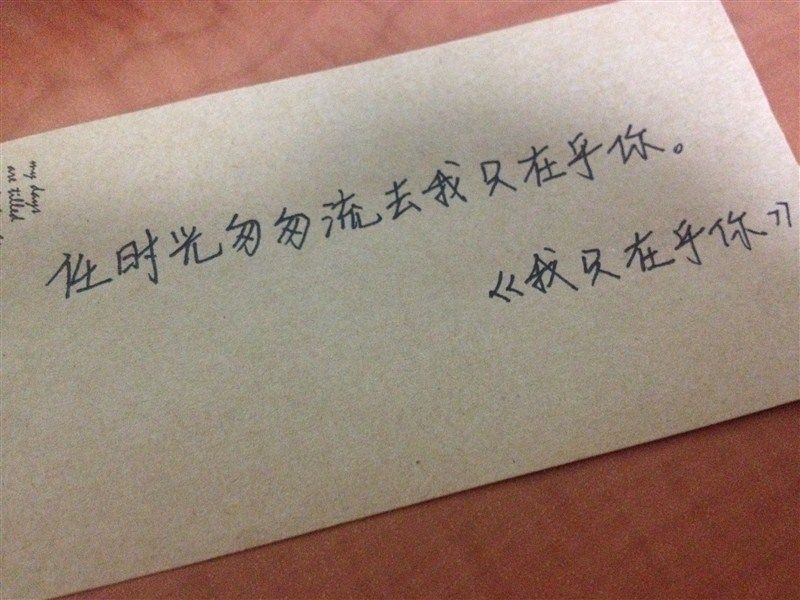 任时光匆匆流去我只在乎你。
《我只在乎你》
my days
are filled